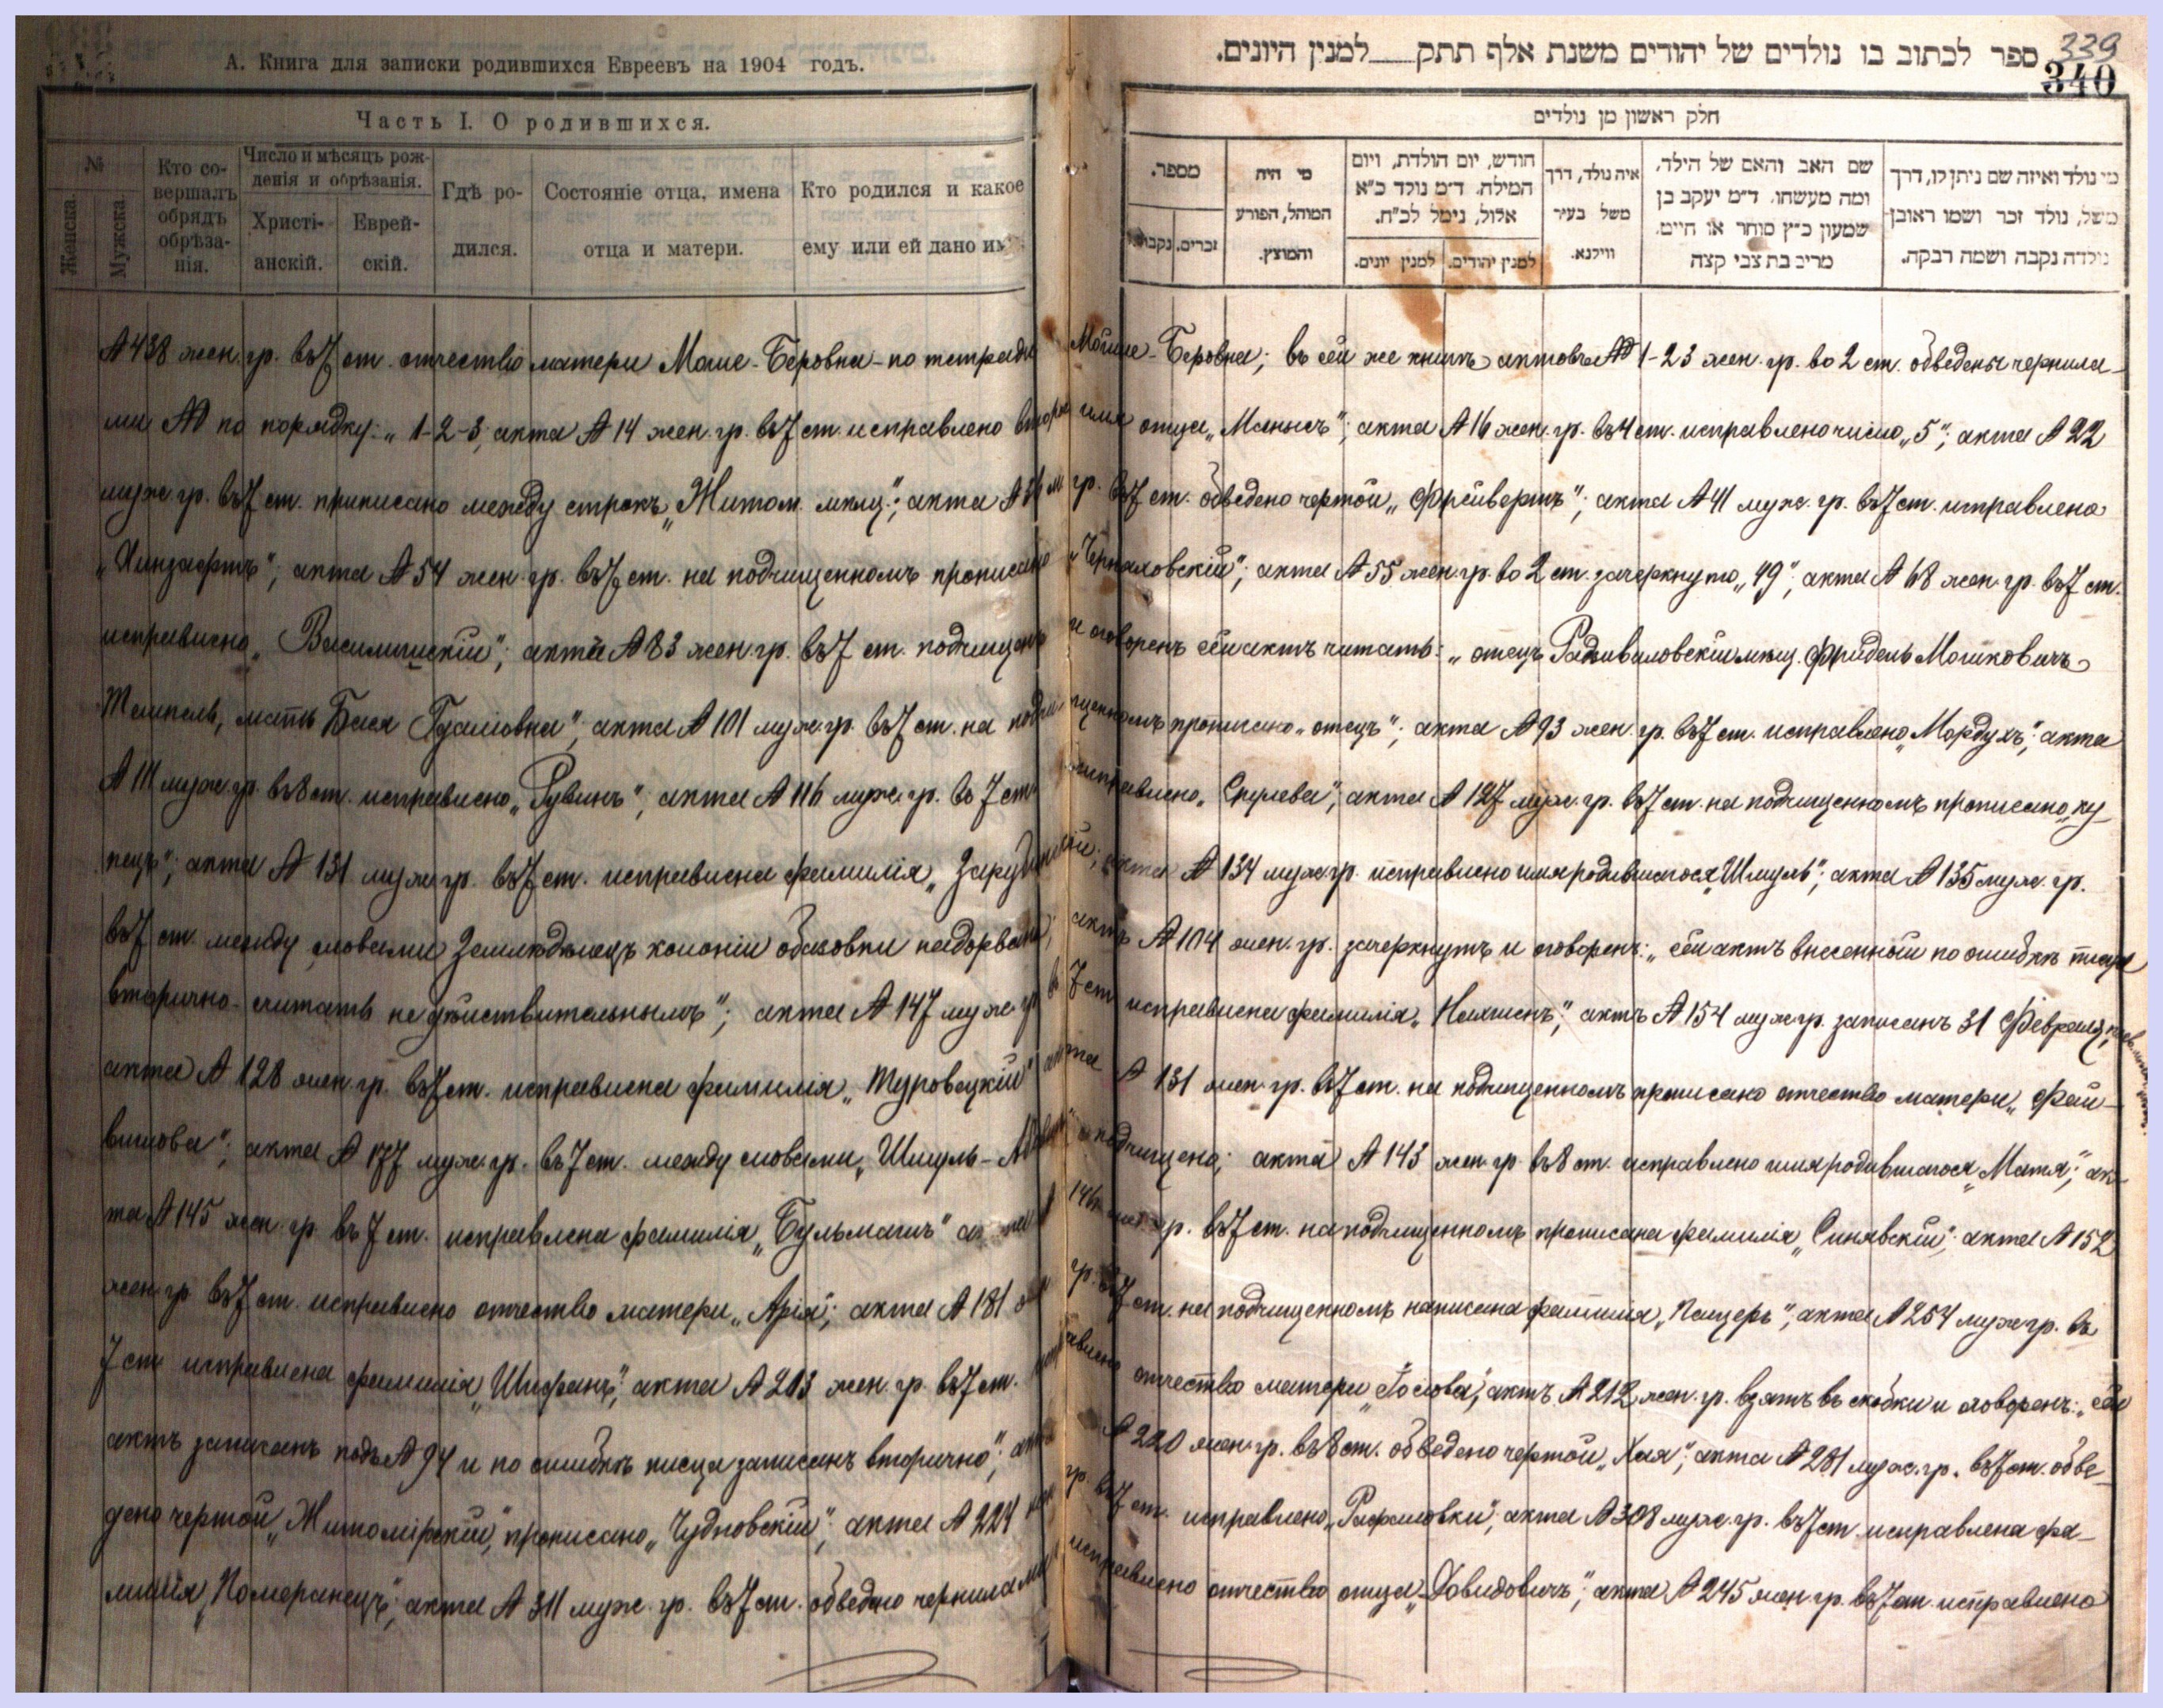 А. Книга для записки родившихся Евреевъ на 1904 годъ.
Часть I. О родившихся.
№
Женска.
Мужска.
Кто со-
вершалъ
обрядъ
обрѣза-
нія.
Число и мѣсяцъ рож-
денія и обрѣзанія.
Христі-
анскій.
Еврей-
скій.
Гдѣ ро-
дился.
Состояніе отца, имена
отца и матери.
Кто родился и какое
ему или ей дано имя
339
340
ספר לכתוב בו נולדים של יהודים משנת אלף תתק למנין היונים.
חלק ראשון מן נולדים
מספר.
זכרים.
נקבות.
מי היה
המוהל, הפורע
והמוצץ.
חודש, יום הולדת, ויום
המילה. ד״מ נולד כ״א
אלול, נימל לכ״ח.
למנין יהודים.
למנין יונים.
איה נולד, דרך
משל בעיר
ווילנא.
שם האב והאם של הילד,
ומה מעשהו. ד״מ יעקב בן
שמעון כ״ץ סוחר או חייט.
מרים בת צבי קצה
מי נולד ואיזה שם ניתן לו, דרך
משל, נולד זכר ושמו ראובן
נולדה נקבה ושמה רבקה.
№ 438 жен. гр. въ 7 ст. отчество матери Моше-Беровна - по тетради Мошие-Беровна; въ сей же книгѣ актовъ №№ 1-23 жен. гр. во 2 ст. обведены чернила-
ми №№ по порядку: „1-2-3; акта № 14 жен. гр. въ 7 ст. исправлено второе имя отца „Манысъ"; акта № 16 жен. гр. въ 4 ст. исправлено число „5"; акта № 22
муж. гр. въ 7 ст. приписано между строкъ „Житом. мѣщ."; акта № м гр. въ 7 ст. обведено чертой „Фрейвертъ"; акта № 41 муж. гр. въ 7 ст. исправлено
акта № 54 жен. гр. въ 7 ст. на подчищенномъ прописано „Черняховскій"; акта № 55 жен. гр. во 2 ст. зачеркнуто „49"; акта № 68 жен. гр. въ 7 ст.
исправлено акта № 83 жен. гр. въ 7 ст. подчищенъ и оговоренъ сей актъ читать: „отецъ Радзивиловскій мѣщ. Фридель Мошковичъ
мать Бася акта № 101 муж. гр. въ 7 ст. на подчищенномъ прописано „отецъ"; акта № 93 жен. гр. въ 7 ст. исправлено „Мордухъ"; акта
№ 111 муж. гр. въ 8 ст. исправлено „Рувинъ"; акта № 116 муж. гр. въ 7 ст. исправлено „Срулева"; акта № 127 муж. гр. въ 7 ст. на подчищенномъ прописано „ку-
пецъ"; акта № 131 муж. гр. въ 7 ст. исправлена фамилія акта № 134 муж. гр. исправлено имя родившагося „Шмуль"; акта № 135 муж. гр.
въ 7 ст. между словами Земледѣлецъ колоніи надорвано; актъ № 104 жен. гр. зачеркнутъ и оговоренъ: „сей актъ внесенный по ошибкѣ писца
вторично - считать недѣйствительнымъ"; акта № 147 муж. гр. въ 7 ст. исправлена фамилія актъ № 154 муж. гр. записанъ 31 Февраля;
акта № 128 жен. гр. въ 7 ст. исправлена фамилія „Туровецкій" акта № 131 жен. гр. въ 7 ст. на подчищенномъ прописано отчество матери „Фай-
вишова"; акта № 177 муж. гр. въ 7 ст. между словами „Шмуль- подчищено; акта № 143 жен. гр. въ 8 ст. исправлено имя родившагося „Матя"; ак-
та № 145 жен. гр. въ 7 ст. исправлена фамилія „Бульмашъ" 146 гр. въ 7 ст. на подчищенномъ прописана фамилія „Синявскій"; акта № 152
жен. гр. въ 7 ст. исправлено отчество матери „Арія"; акта № 181 гр. въ 7 ст. на подчищенномъ написана фамилія „Пацеръ"; акта № 254 муж. гр. въ
7 ст. исправлена фамилія акта № 203 жен. гр. въ 7 ст. исправлено отчество матери „Іослова"; актъ № 212 жен. гр. взятъ въ скобки и оговоренъ: „сей
актъ записанъ подъ № 94 и по ошибкѣ писца записанъ вторично"; акта № 220 жен. гр. въ 8 ст. обведено чертой „Хая"; акта № 281 муж. гр. въ 7 ст. обве-
дено чертой „Житомірскій", прописано „Чудновскій"; акта № 224 жен. гр. въ 7 ст. исправлено „Рафаловки"; акта № 308 муж. гр. въ 7 ст. исправлена фа-
милія „Померанецъ"; акта № 311 муж. гр. въ 7 ст. обведено чернилами исправлено отчество отца „Довидовичъ"; акта № 245 жен. гр. въ 7 ст. исправлено